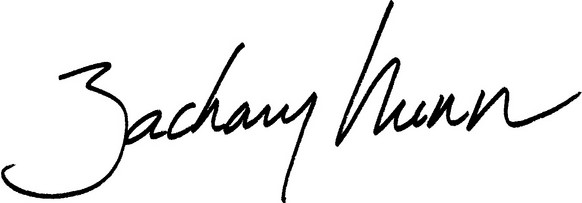 Zachary Nunn